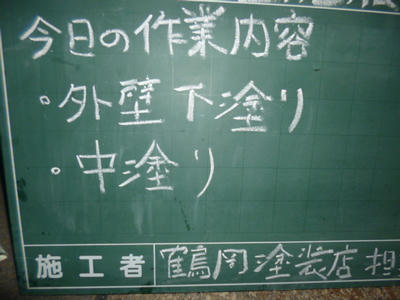 今日の作業内容
・外壁下塗り
・中塗り
施工者 鶴岡塗装店 担